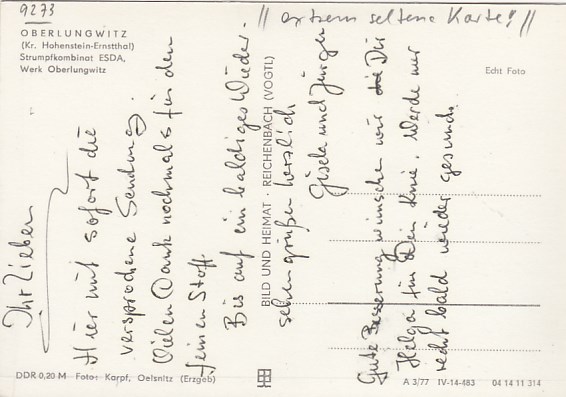 9273
// extrem seltene Karte! //
OBERLUNGWITZ
(Kr. Hohenstein-Ernstthal)
Strumpfkombinat ESDA,
Werk Oberlungwitz
Echt Foto
Ihr Lieben
Hier nun sofort die
versprochene Sendung.
Vielen Dank nochmals für den
feinen Stoff.
Bis auf ein baldiges Wieder-
sehen grüßen herzlich
Gisela und Jürgen
Gute Besserung wünschen wir die Dir
Helga für Dein Knie. Werde nur
recht bald wieder gesund.
BILD UND HEIMAT · REICHENBACH (VOGTL)
DDR 0,20 M Foto: Karpf, Oelsnitz (Erzgeb)
A 3/77 IV-14-483 04 14 11 314